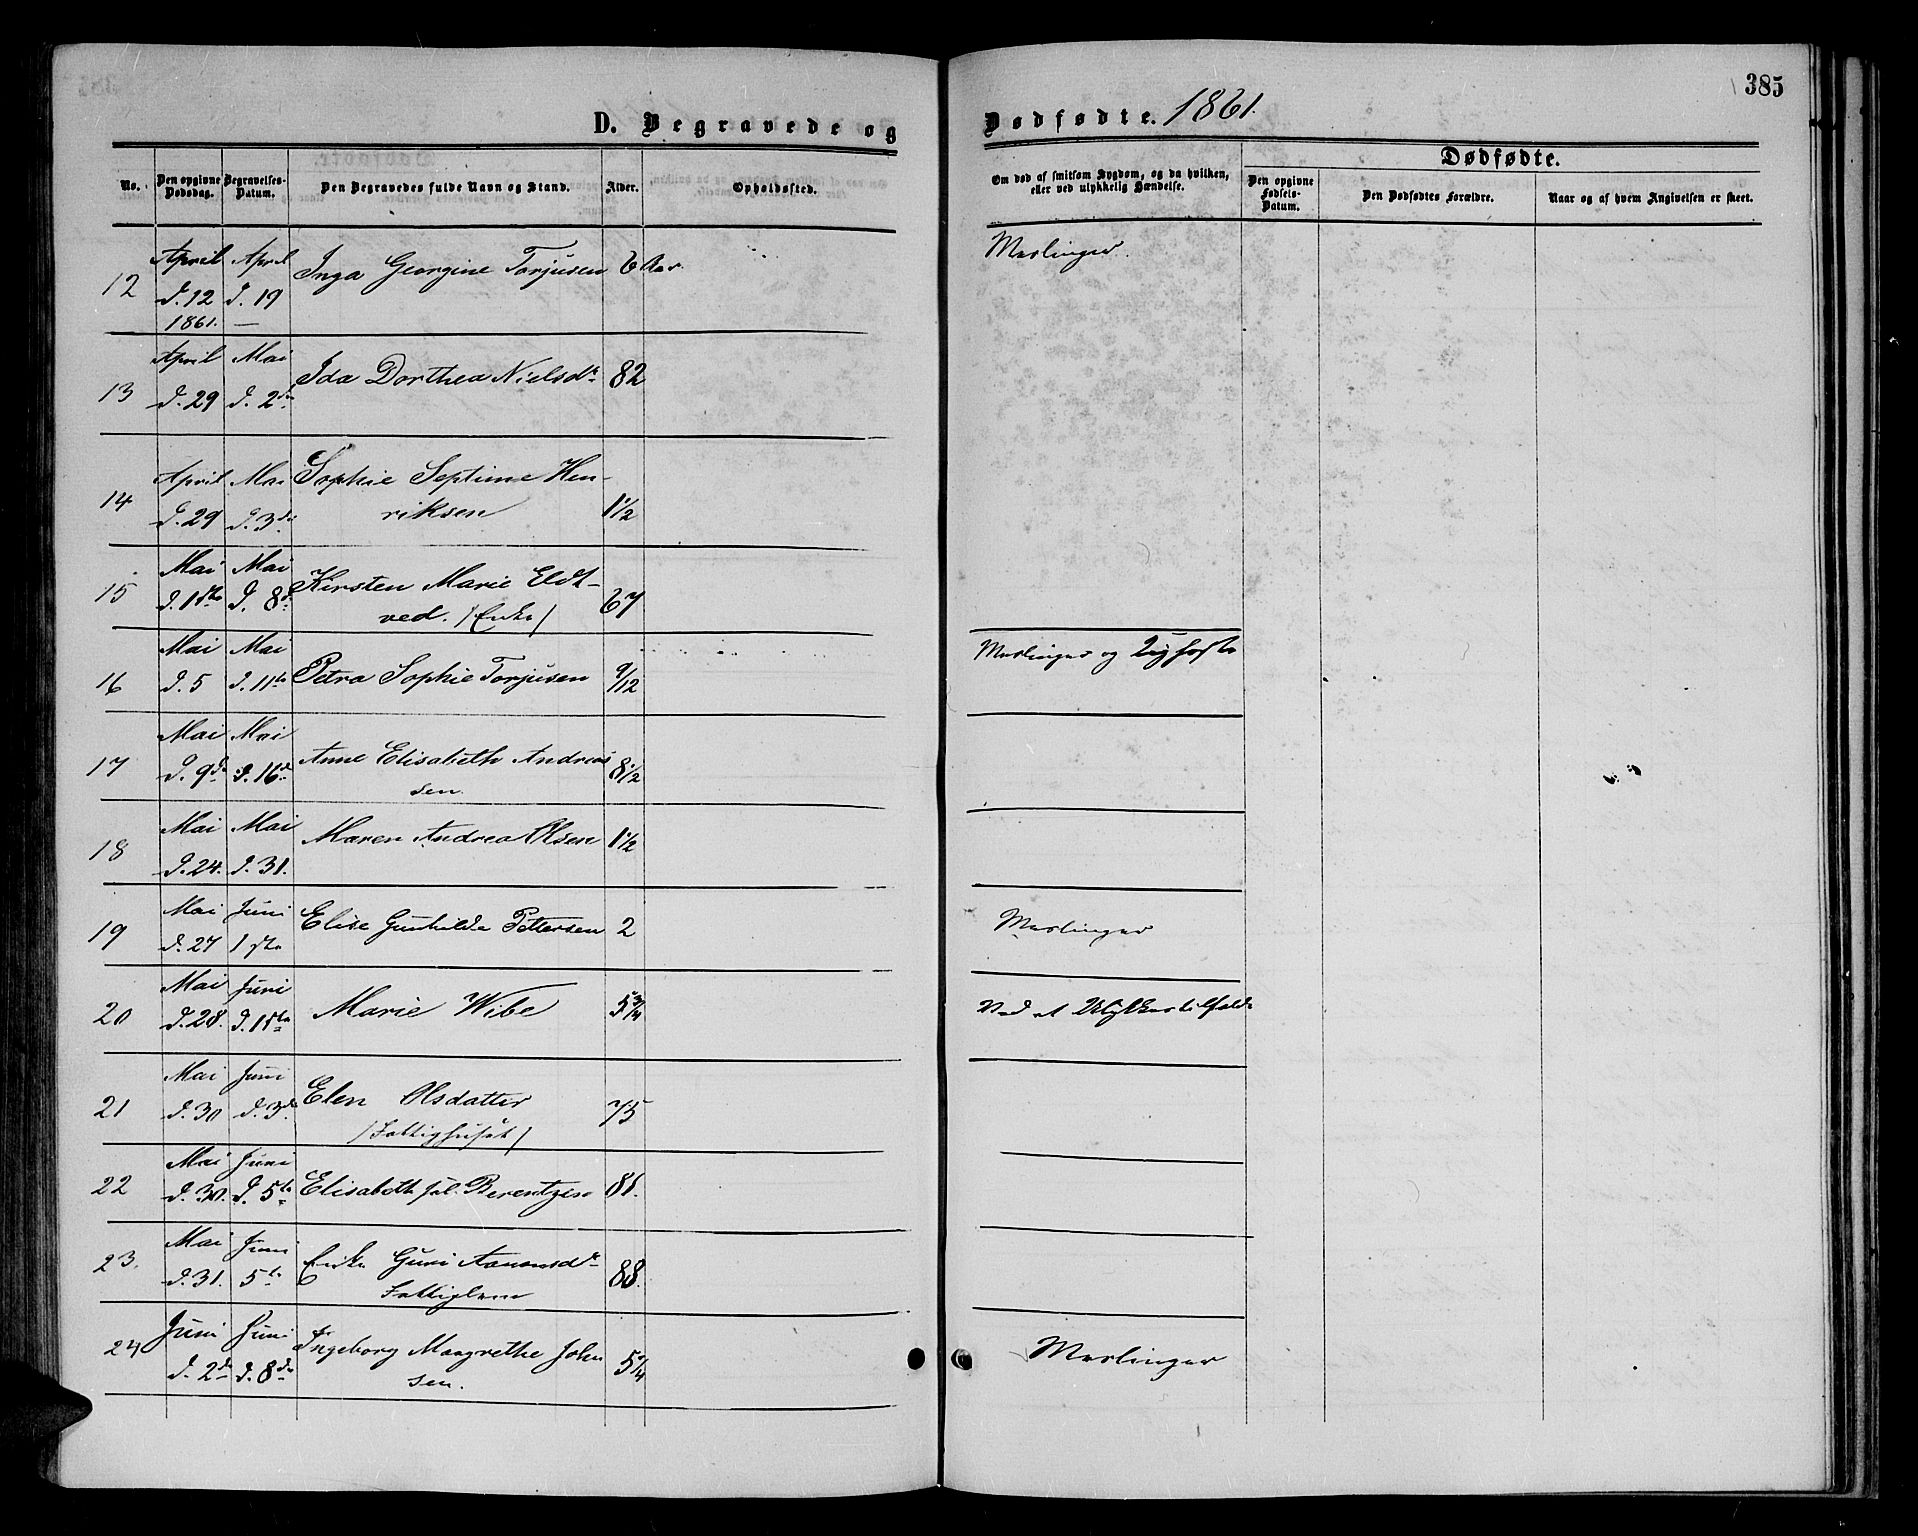 385
D. Begravede og Dødfødte. 1861.
No. Den opgivne Dødsdag. Begravelses-Datum. Den Begravedes fulde Navn og Stand. Alder. Opholdssted. Om død af smitsom Sygdom, og da hvilken, eller ved ulykkelig Hændelse. Dødfødte.
Den opgivne Fødsels-Datum. Den Dødfødtes Forældre. Naar og af hvem Angivelsen er skeet.
12 April d. 12 1861. April d. 19 — Inga Georgine Torjusen 6 Aar. Meslinger.
13 April d. 29 Mai d. 2de Ida Dorthea Nielsdr 82
14 April d. 29 Mai d. 3de Sophie Septime Hen-
riksen 1 1/2
15 Mai d. 1ste Mai d. 8de Kirsten Marie Eldt-
ved. /Enke/ 67
16 Mai d. 5 Mai d. 11te Petra Sophie Torjusen 9/12 Meslinger og
17 Mai d. 9de Mai d. 16de Anne Elisabeth Andreas
sen. 8 1/2
18 Mai d. 24. Mai d. 31. Maren Andrea Olsen 1 1/2
19 Mai d. 27 Juni 1ste Elise Gunhilde Pettersen 2 Meslinger
20 Mai d. 28. Juni d. 1ste Marie Wibe 5 3/4 Ved et Ulykkestilfælde
21 Mai d. 30 Juni d. 3de Elen Olsdatter
/Fattighuset/ 75
22 Mai d. 30. Juni d. 5te Elisabeth sal. Berentzen 81.
23. Mai d. 31. Juni 5te Enke Guri Aanensdr
Fattiglem 88.
24 Juni d. 2de Juni d. 8de Ingeborg Maagrethe John
sen. Meslinger